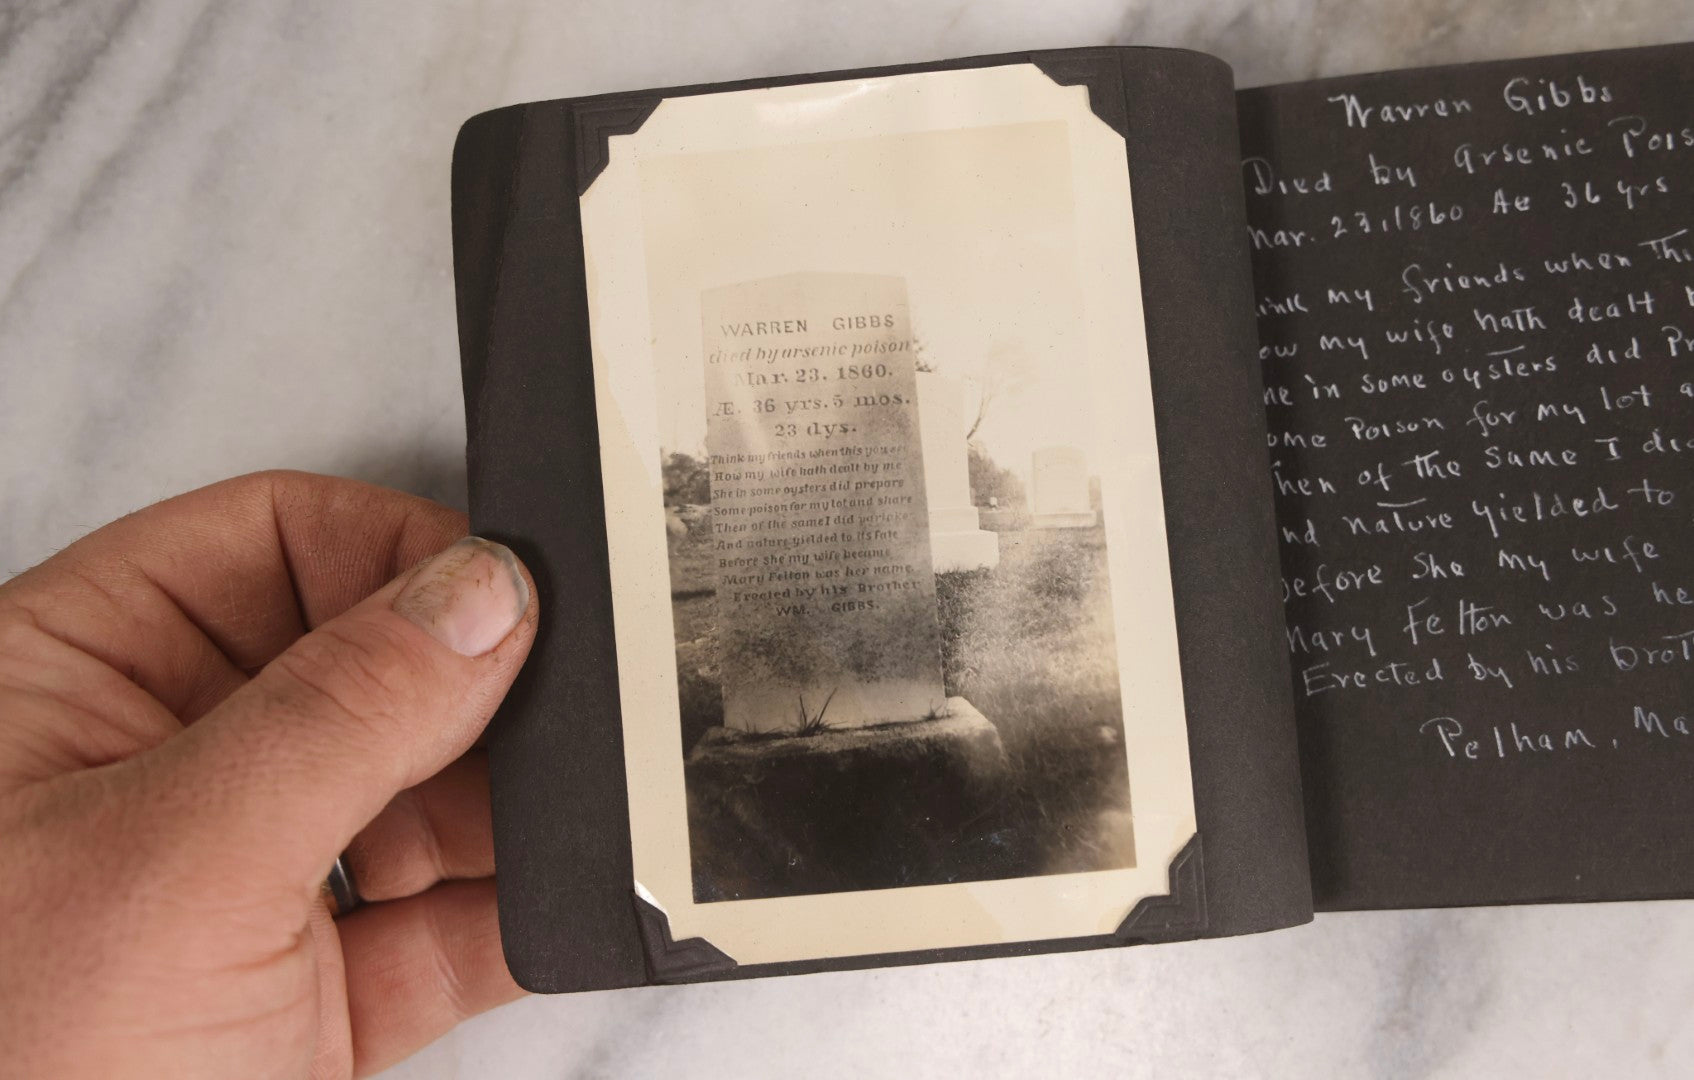 WARREN GIBBS
died by arsenic poison
Mar. 23. 1860.
Æ. 36 yrs. 5 mos.
23 dys.
Think my friends when this you see
How my wife hath dealt by me
She in some oysters did prepare
Some poison for my lot and share
Then of the same I did partake
And nature yielded to its fate
Before she my wife became
Mary Felton was her name.
Erected by his Brother
WM. GIBBS.
Warren Gibbs
Died by arsenic Pois
Mar. 23, 1860 Ae 36 yrs
ink my friends when Thi
ow my wife hath dealt b
he in some oysters did Pr
ome Poison for my lot a
hen of The Same I did
nd nature yielded to
Before She my wife
Mary Felton was he
Erected by his broT
Pelham, Ma